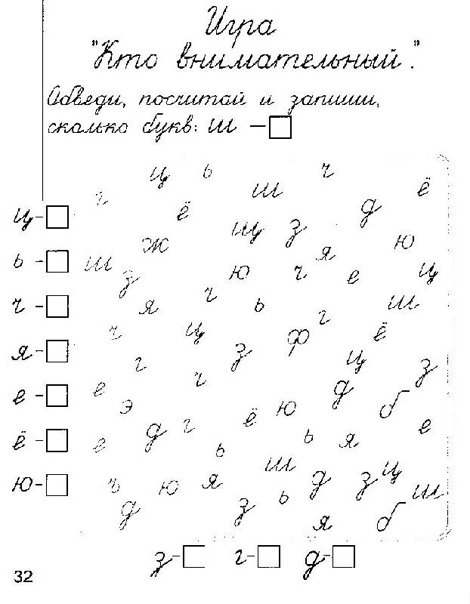 Игра
"Кто внимательный".
Обведи, посчитай и запиши,
сколько букв: ш –
ц–
ь–
ч–
я–
е–
ё–
ю–
ц ь ш ч ё
г ё щ з д
ж я ю
ш з ю ч е ц
я г ь г ш
ч ц з ф ё
г ч ц з
е э д б
д г ё ю е
е ь ь я
ш з ц
ч ю я д ш
д з ь я б
з– г– д–
32